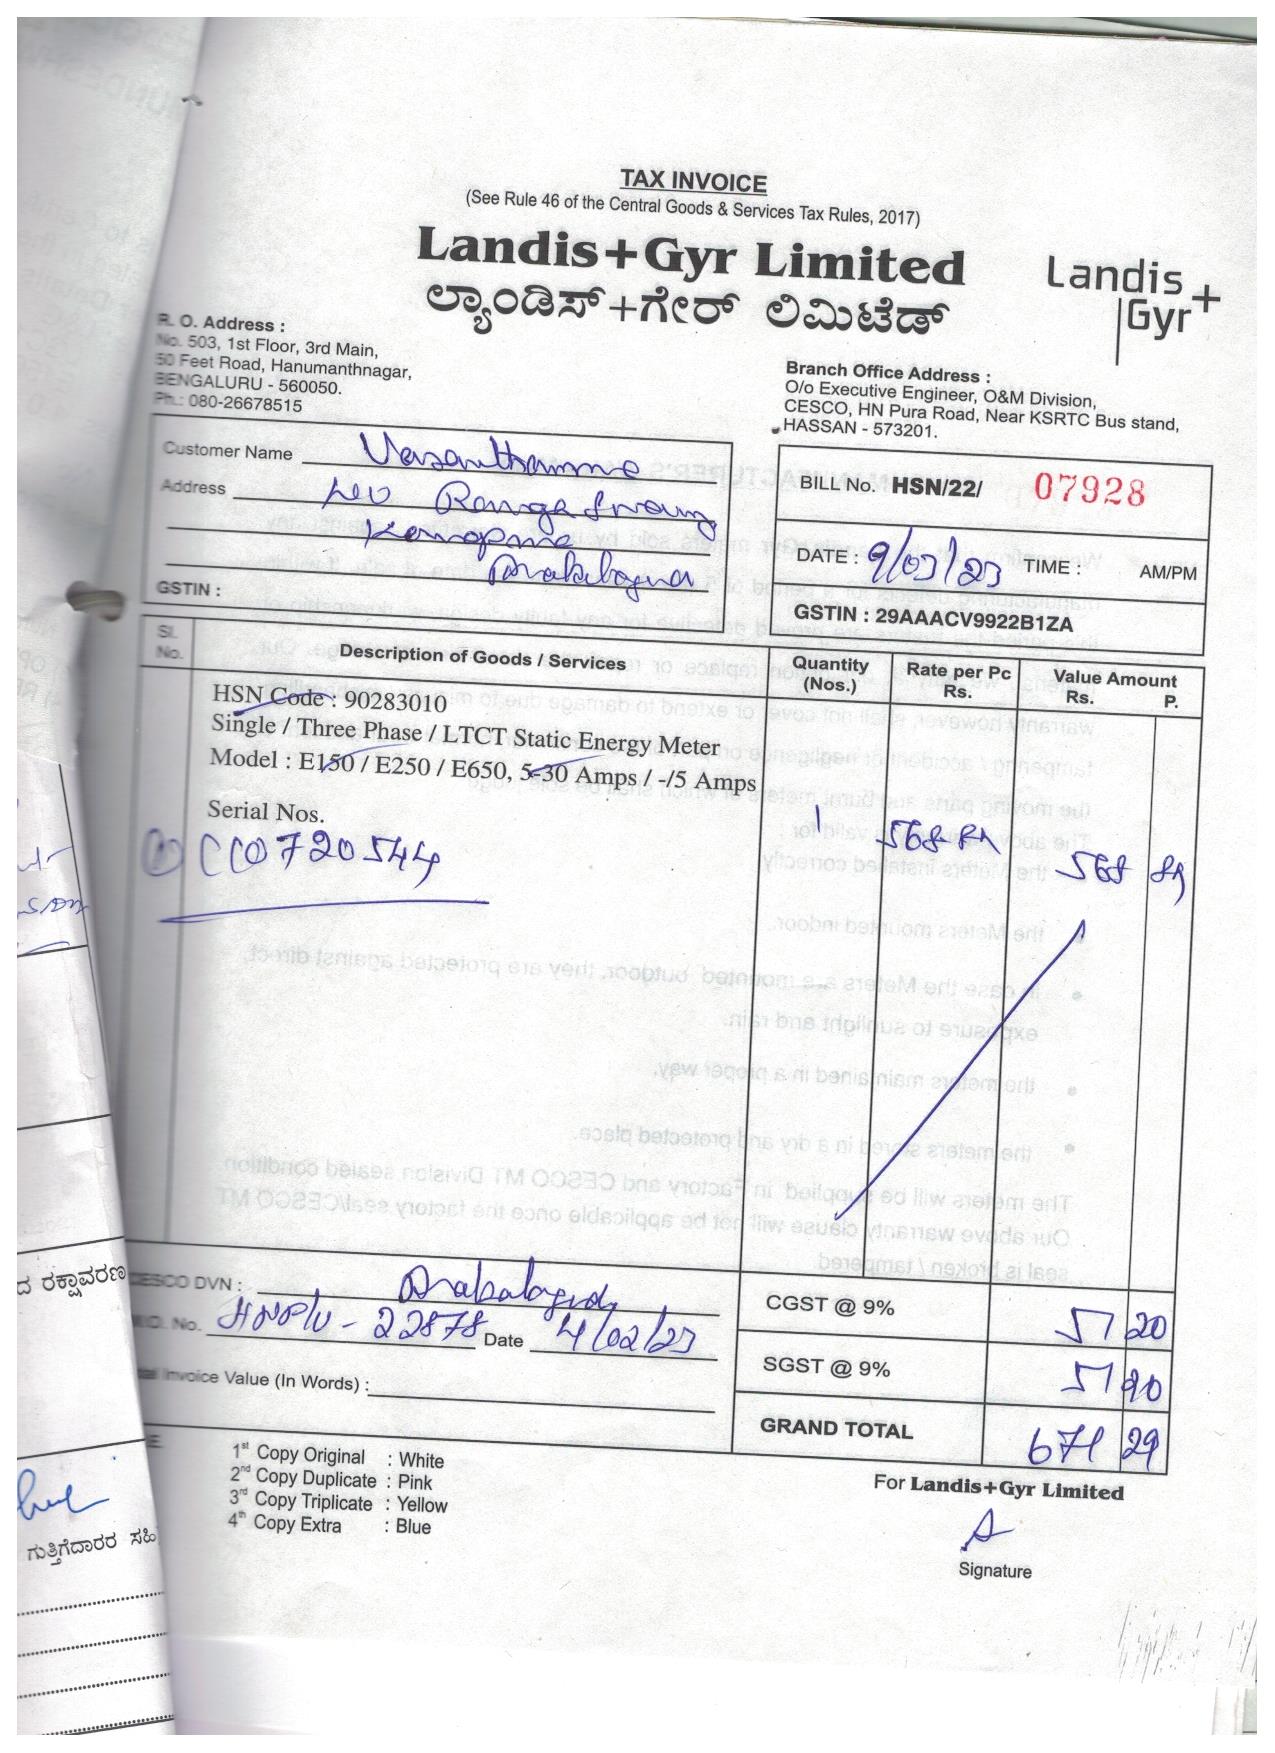 TAX INVOICE
(See Rule 46 of the Central Goods & Services Tax Rules, 2017)
Landis+Gyr Limited
ಲ್ಯಾಂಡಿಸ್+ಗೇರ್ ಲಿಮಿಟೆಡ್
Landis+
Gyr+
R. O. Address :
No. 503, 1st Floor, 3rd Main,
50 Feet Road, Hanumanthnagar,
BENGALURU - 560050.
Ph.: 080-26678515
Branch Office Address :
O/o Executive Engineer, O&M Division,
CESCO, HN Pura Road, Near KSRTC Bus stand,
HASSAN - 573201.
Customer Name Vasanthamme
Address Ranga Swamy
GSTIN :
BILL No. HSN/22/ 07928
DATE : 9/03/23 TIME : AM/PM
GSTIN : 29AAACV9922B1ZA
Sl. No. Description of Goods / Services Quantity (Nos.) Rate per Pc Rs. Value Amount Rs. P.
HSN Code : 90283010
Single / Three Phase / LTCT Static Energy Meter
Model : E150 / E250 / E650, 5-30 Amps / -/5 Amps
Serial Nos.
1 568-89 568 89
CC0720544
CESCO DVN :
No. 22878 Date 4/02/23
Invoice Value (In Words) :
CGST @ 9% 51 20
SGST @ 9% 51 20
GRAND TOTAL 671 29
1st Copy Original : White
2nd Copy Duplicate : Pink
3rd Copy Triplicate : Yellow
4th Copy Extra : Blue
For Landis+Gyr Limited
Signature
ದ ರಕ್ಷಾವರಣ
ಗುತ್ತಿಗೆದಾರರ ಸಹಿ